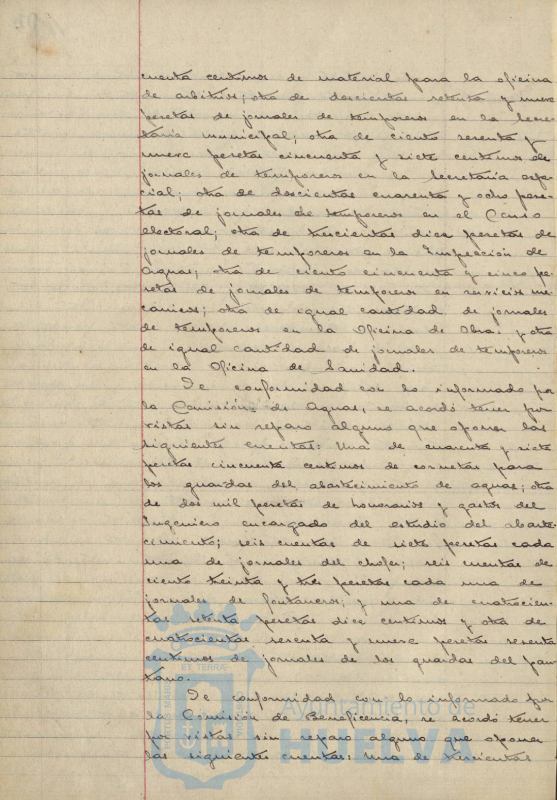 cuenta centimos de material para la oficina
de arbitrios; otra de doscientas setenta y nueve
pesetas de jornales de temporeros en la Secre-
taria municipal; otra de ciento sesenta y
nueve pesetas cincuenta y siete centimos de
jornales de temporeros en la Secretaria espe-
cial; otra de doscientas cuarenta y ocho pese-
tas de jornales de temporeros en el Censo
electoral; otra de trescientas diez pesetas de
jornales de temporeros en la Inspección de
Aguas; otra de ciento cincuenta y cinco pe-
setas de jornales de temporeros en servicios me-
canicos; otra de igual cantidad de jornales
de temporeros en la Oficina de Obras y otra
de igual cantidad de jornales de temporeros
en la Oficina de Sanidad.
De conformidad con lo informado por
la Comisión de Aguas, se acordó tener por
vistas sin reparo alguno que oponer las
siguientes cuentas: Una de cuarenta y siete
pesetas cincuenta centimos de cornetas para
los guardas del abastecimiento de aguas; otra
de dos mil pesetas de honorarios y gastos del
Ingeniero encargado del estudio del abaste-
cimiento; seis cuentas de siete pesetas cada
una de jornales del chofer; seis cuentas de
ciento treinta y tres pesetas cada una de
jornales de fontaneros; y una de cuatrocien-
tas setenta pesetas diez centimos y otra de
cuatrocientas sesenta y nueve pesetas sesenta
centimos de jornales de los guardas del pan-
tano.
De conformidad con lo informado por
la Comisión de Beneficencia, se acordó tener
por vistas sin reparo alguno que oponer
las siguientes cuentas: Una de trescientas
Ayuntamiento de
HUELVA